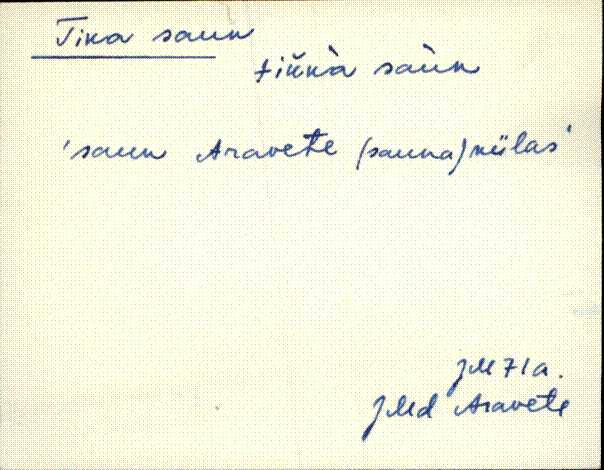 Tika saun
tik̆kà sàun
'saun Aravete (sauna)külas'
JM71a.
JMd Aravete